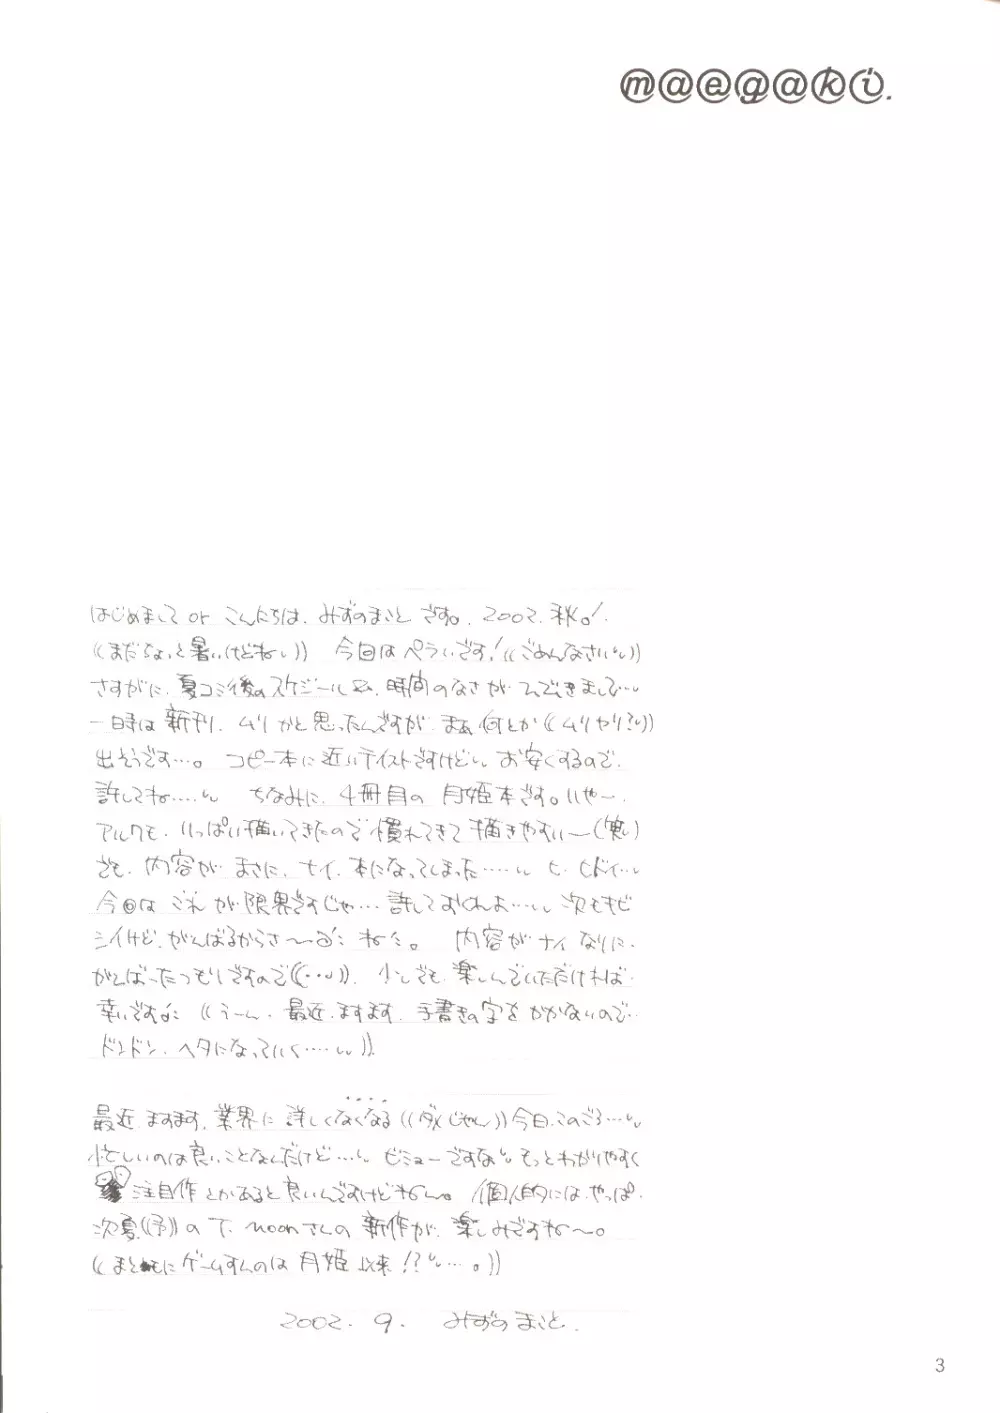 m@e@g@a@k@i.
はじめまして or こんにちは、みずのまことです。2002.秋。!
((まだちょいと暑いけどねい)) 今回はペラいです!((ごめんなさい))
さすがに、夏コミ後のスケジュール、時間のなさが
一時は新刊、ムリかと思ったんですが、まぁ何とか((ムリヤリ?))
出そうです…。コピー本に近いテイストですけど お安くするので、
許してね…… ちなみに、4冊目の月姫本です。いや〜、
アルクも、いっぱい描いてきたので慣れてきて描きやすい〜
でも、内容がまさに、ナイ、本になってしまった…… ヒ、ヒドイ…
今回はこれが限界ですじゃ… 許しておくれよ… 次もキビ
シイけど、がんばるからさ〜 内容がナイなりに、
がんばったつもりですので((…))、少しでも楽しんでいただければ
幸いです ((うーん、最近、ますます、手書きの字をかかないので…
ドンドン、ヘタになっていく……)).
最近、ますます、業界に詳しくなくなる((ダメじゃん))今日このごろ…
忙しいのは良いことなんだけど… ビミョーですな もっとわかりやすく
注目作とかあると良いんですけどね〜。個人的には、やっぱ、
次夏((予))のT.moonさんの新作が、楽しみですね〜。
((まともにゲームすんのは月姫以来!?…。))
2002.9. みずのまこと.
3